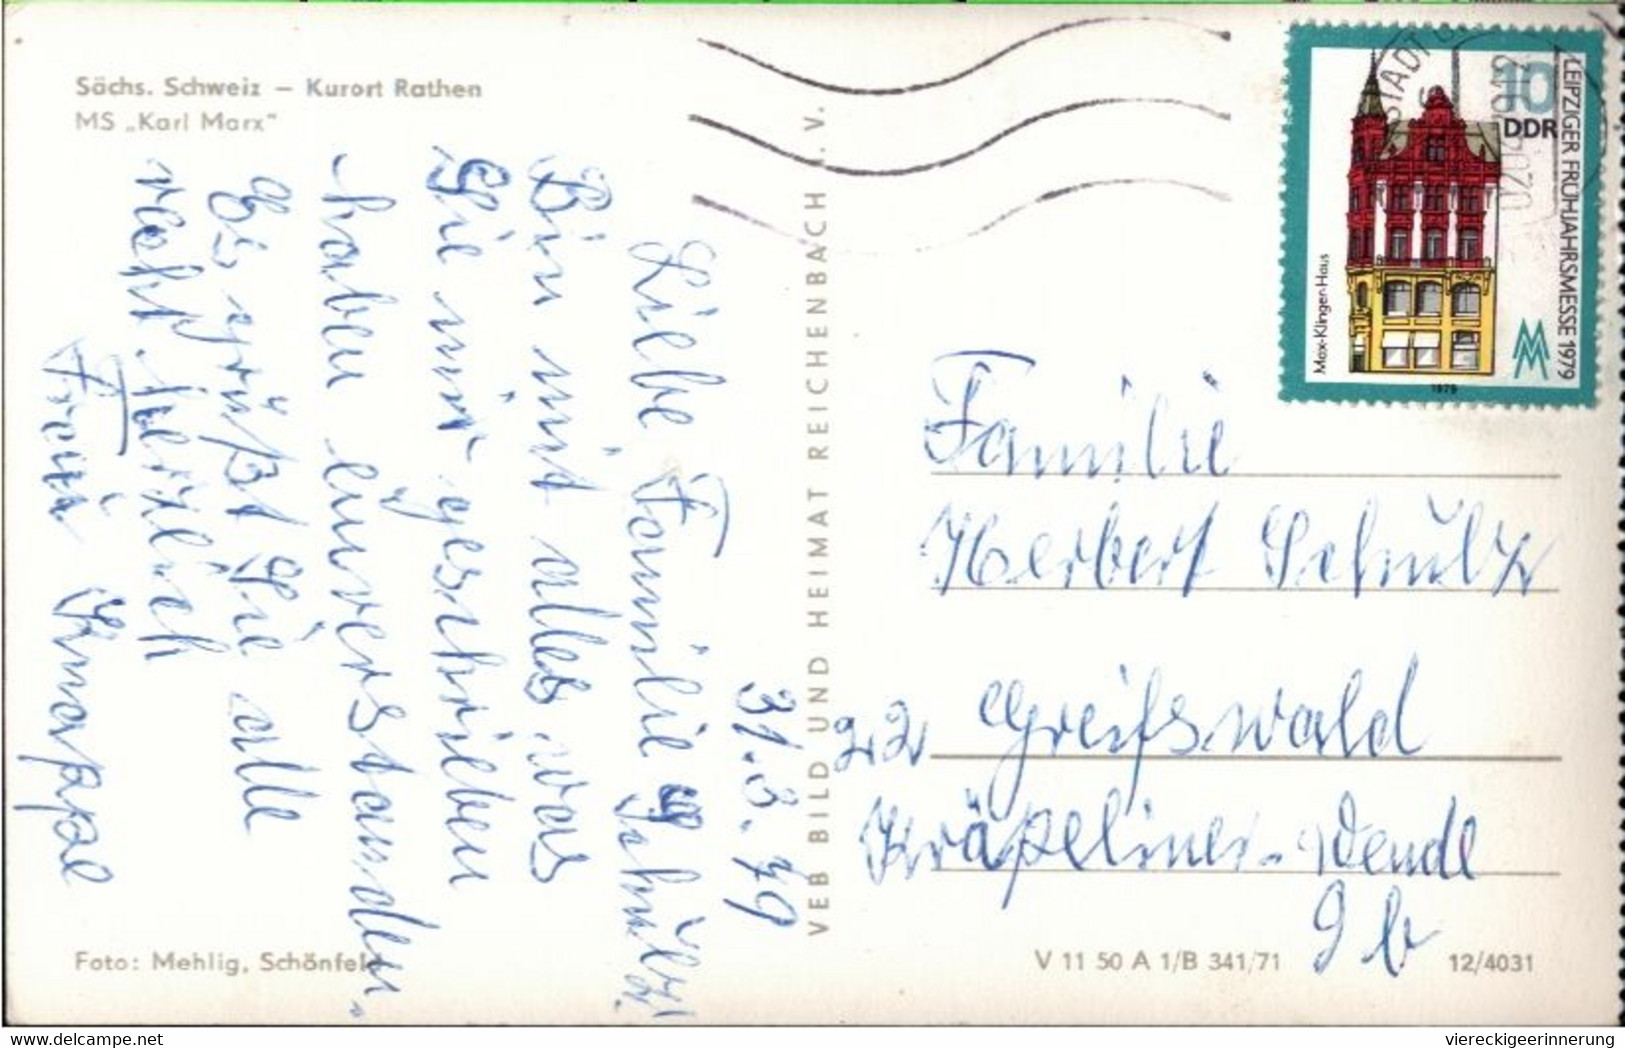 Sächs. Schweiz – Kurort Rathen
MS „Karl Marx"
31.3.79
Liebe Familie Schulz.
Bin mit alles was
Sie mir geschrieben
haben einverstanden.
Es grüßt Sie alle
recht herzlich
Frau Knappe
Foto: Mehlig, Schönfeld
VEB BILD UND HEIMAT REICHENBACH I. V.
10
DDR
LEIPZIGER FRÜHJAHRSMESSE 1979
Max-Klinger-Haus
1979
STADT
Familie
Herbert Schulz
22 Greifswald
Kräpeliner-Wende
9b
V 11 50 A 1/B 341/71
12/4031
viereckigeerinnerung